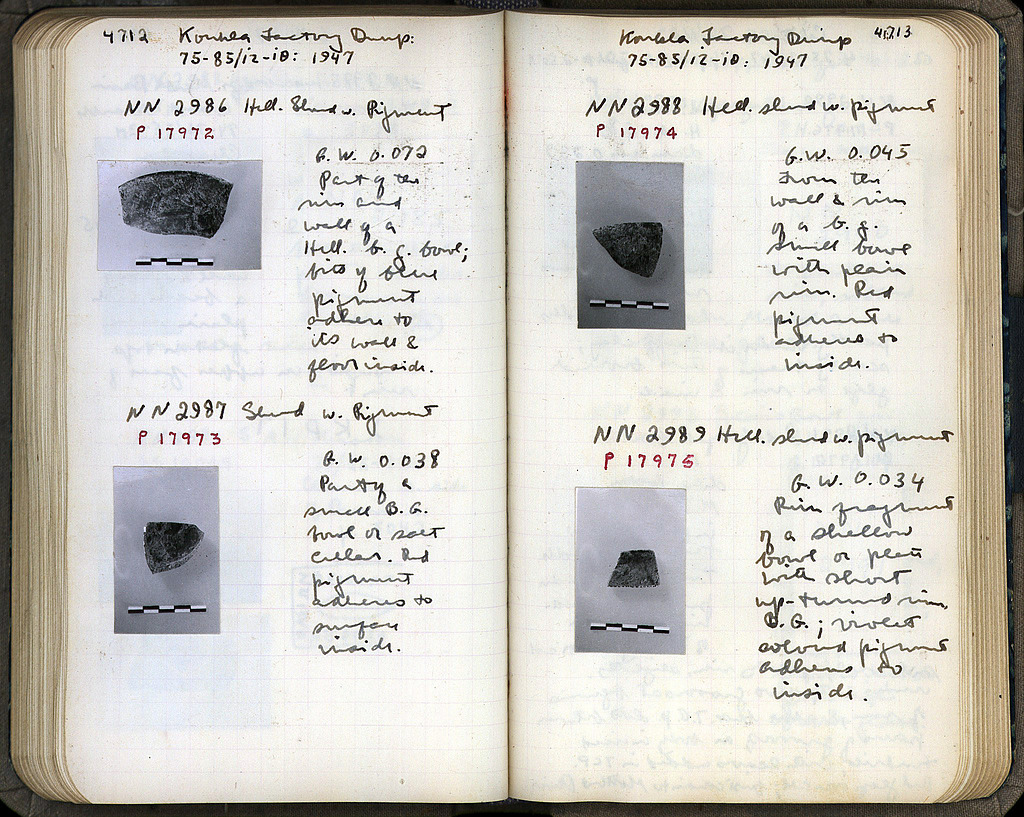 4712 Koukla Factory Dump:
75-85/12-ιθ: 1947
NN 2986 Hell. Sherd w. Pigment
P 17972
G.W. 0.072
Part of the
rim and
wall of a
Hell. b.g. bowl;
bits of blue
pigment
adhere to
its wall &
floor inside.
NN 2987 Sherd w. Pigment
P 17973
G.W. 0.038
Part of a
small B.G.
bowl or salt
cellar. Red
pigment
adheres to
surface
inside.
Koukla Factory Dump 4713
75-85/12-ιθ: 1947
NN 2988 Hell. sherd w. pigment
P 17974
G.W. 0.045
From the
wall & rim
of a b.g.
small bowl
with plain
rim. Red
pigment
adheres to
inside.
NN 2989 Hell. sherd w. pigment
P 17975
G.W. 0.034
Rim fragment
of a shallow
bowl or plate
with short
up-turned rim,
B.G.; violet
colored pigment
adheres to
inside.